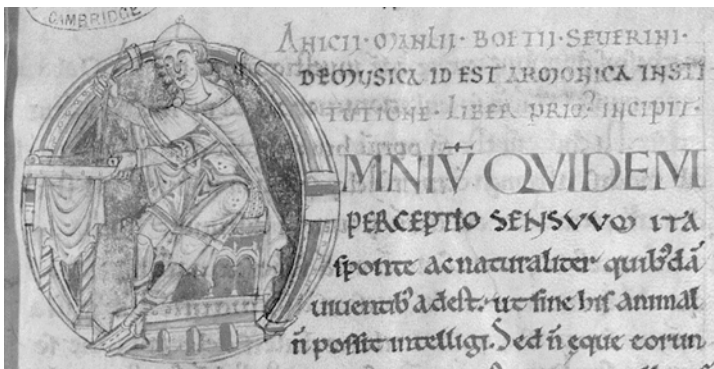 CAMBRIDGE
ANICII · MANLII · BOETII · SEVERINI ·
DE MUSICA ID EST ARMONICA INSTI
TUTIONE · LIBER PRIM᾽ INCIPIT ·
OMNIV̄ QVIDEM
PERCEPTIO SENSVVM ITA
sponte ac naturaliter quib᾽dā
uiuentib᾽ adest. ut sine his animal
n̄ possit intelligi. Sed n̄ ęque eorun